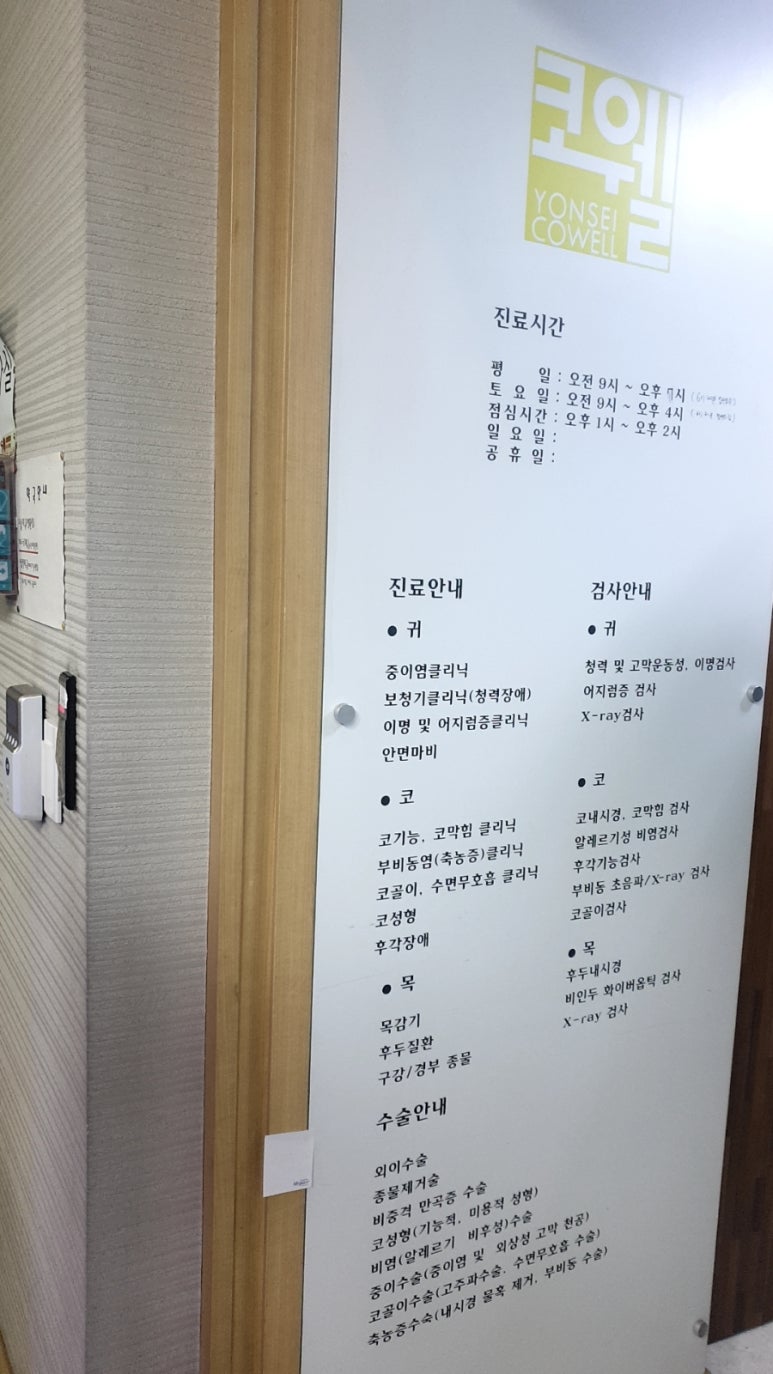 코웰
YONSEI
COWELL
진료시간
평 일 : 오전 9시 ~ 오후 시
토 요 일 : 오전 9시 ~ 오후 4시
점심시간 : 오후 1시 ~ 오후 2시
일 요 일 :
공 휴 일 :
진료안내
● 귀
중이염클리닉
보청기클리닉(청력장애)
이명 및 어지럼증클리닉
안면마비
● 코
코기능, 코막힘 클리닉
부비동염(축농증)클리닉
코골이, 수면무호흡 클리닉
코성형
후각장애
● 목
목감기
후두질환
구강/경부 종물
검사안내
● 귀
청력 및 고막운동성, 이명검사
어지럼증 검사
X-ray검사
● 코
코내시경, 코막힘 검사
알레르기성 비염검사
후각기능검사
부비동 초음파/X-ray 검사
코골이검사
● 목
후두내시경
비인두 화이버옵틱 검사
X-ray 검사
수술안내
외이수술
종물제거술
비중격 만곡증 수술
코성형(기능적, 미용적 성형)
비염(알레르기 비후성)수술
중이수술(중이염 및 외상성 고막 천공)
코골이수술(고주파수술, 수면무호흡 수술)
축농증수숙(내시경 물혹 제거, 부비동 수술)